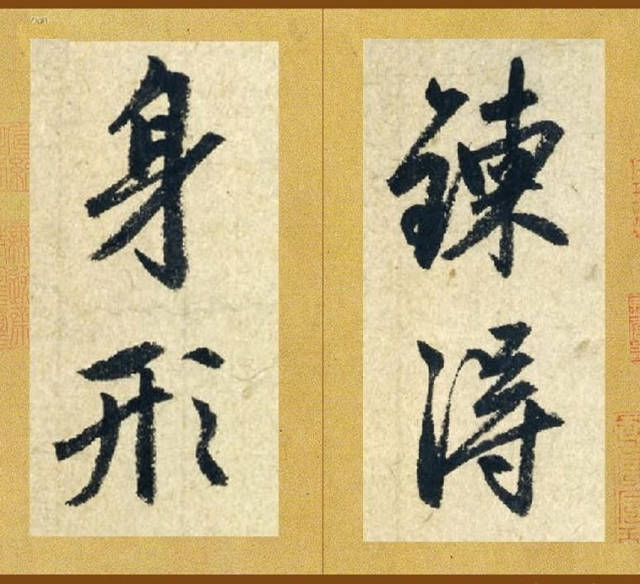 鍊得
身形